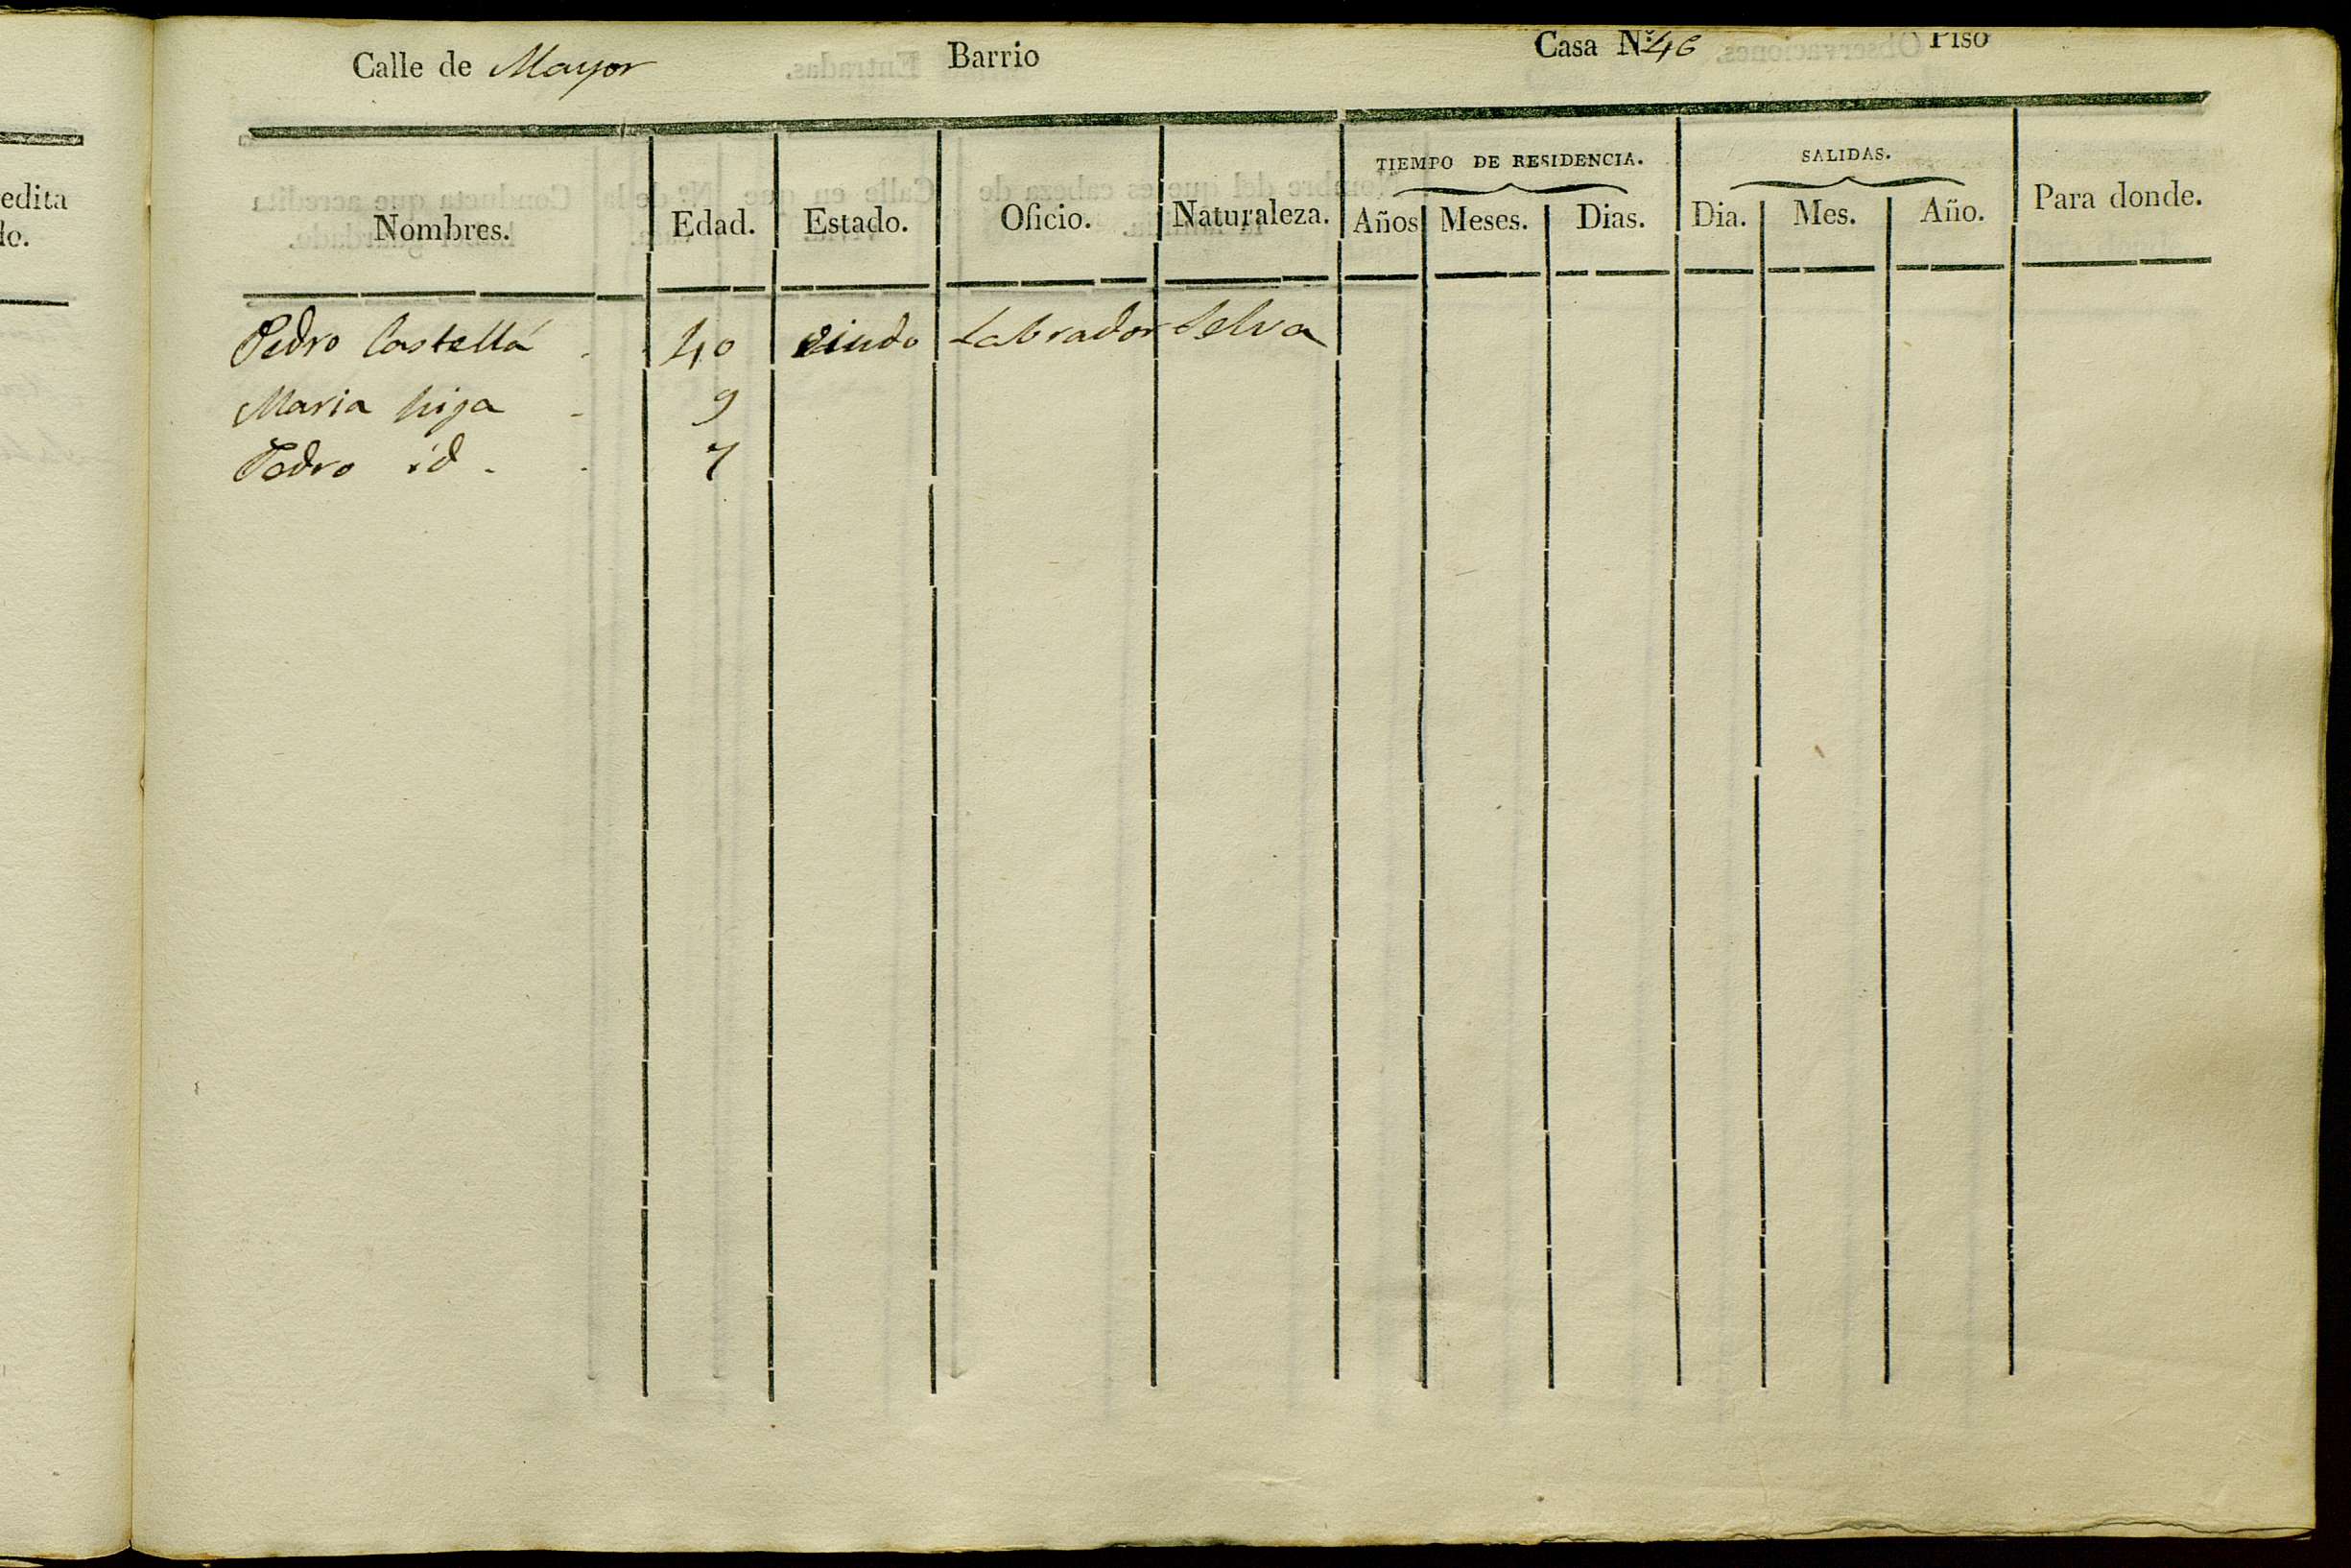 edita
do.
Calle de Mayor Barrio Casa N.º 46 Piso
TIEMPO DE RESIDENCIA. SALIDAS.
Nombres. Edad. Estado. Oficio. Naturaleza. Años Meses. Dias. Dia. Mes. Año. Para donde.
Pedro Castellá 40 viudo Labrador Selva
Maria hija 9
Pedro id 7